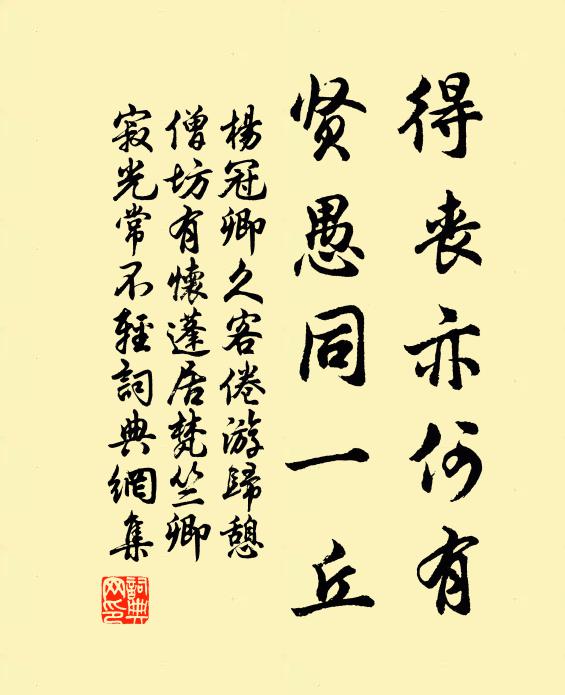 得丧亦何有
贤愚同一丘
楊冠卿久客倦游歸憩
僧坊有懷蓬居梵竺卿
寂光常不輕詞典網集
詞典网印